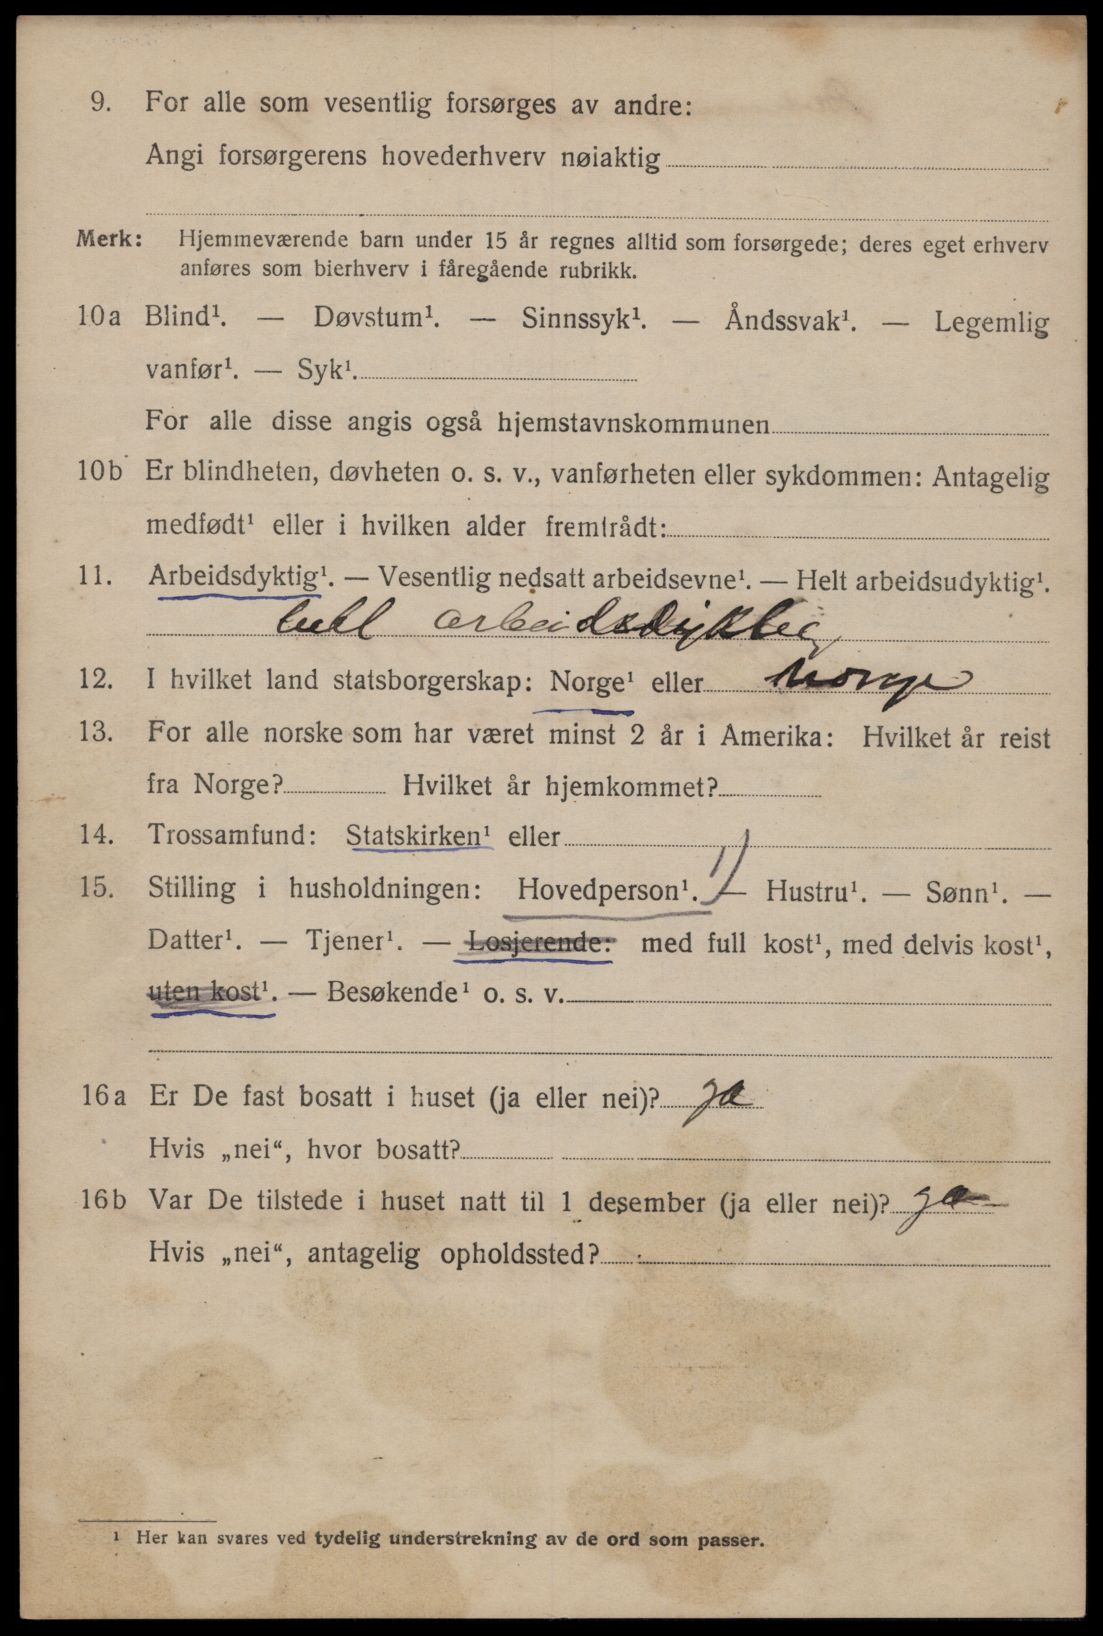 9. For alle som vesentlig forsørges av andre:
Angi forsørgerens hovederhverv nøiaktig
Merk: Hjemmeværende barn under 15 år regnes alltid som forsørgede; deres eget erhverv
anføres som bierhverv i fåregående rubrikk.
10a Blind¹. — Døvstum¹. — Sinnssyk¹. — Åndssvak¹. — Legemlig
vanfør¹. — Syk¹.
For alle disse angis også hjemstavnskommunen
10b Er blindheten, døvheten o. s. v., vanførheten eller sykdommen: Antagelig
medfødt¹ eller i hvilken alder fremtrådt:
11. Arbeidsdyktig¹. — Vesentlig nedsatt arbeidsevne¹. — Helt arbeidsudyktig¹.
arbeidsdyktig
12. I hvilket land statsborgerskap: Norge¹ eller Norge
13. For alle norske som har været minst 2 år i Amerika: Hvilket år reist
fra Norge? Hvilket år hjemkommet?
14. Trossamfund: Statskirken¹ eller
15. Stilling i husholdningen: Hovedperson¹. 1) — Hustru¹. — Sønn¹. —
Datter¹. — Tjener¹. — Losjerende: med full kost¹, med delvis kost¹,
uten kost¹. — Besøkende¹ o. s. v.
16a Er De fast bosatt i huset (ja eller nei)? ja
Hvis „nei“, hvor bosatt?
16b Var De tilstede i huset natt til 1 desember (ja eller nei)? ja
Hvis „nei“, antagelig opholdssted?
¹ Her kan svares ved tydelig understrekning av de ord som passer.